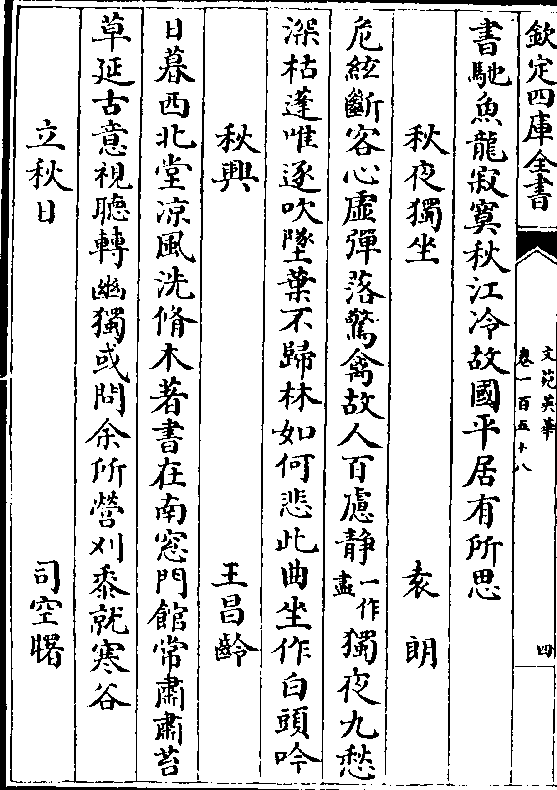 欽定四庫全書
文苑英華
卷一百五十八
四
書馳魚龍寂寞秋江冷故國平居有所思
秋夜獨坐 袁朗
危絃斷客心虛彈落驚禽故人百慮静一作盡獨夜九愁
深枯蓬唯逐吹墜葉不歸林如何悲此曲坐作白頭吟
秋興 王昌齡
日暮西北堂涼風洗脩木著書在南窓門館常肅肅苔
草延古意視聽轉幽獨或問余所營刈黍就寒谷
立秋日 司空曙